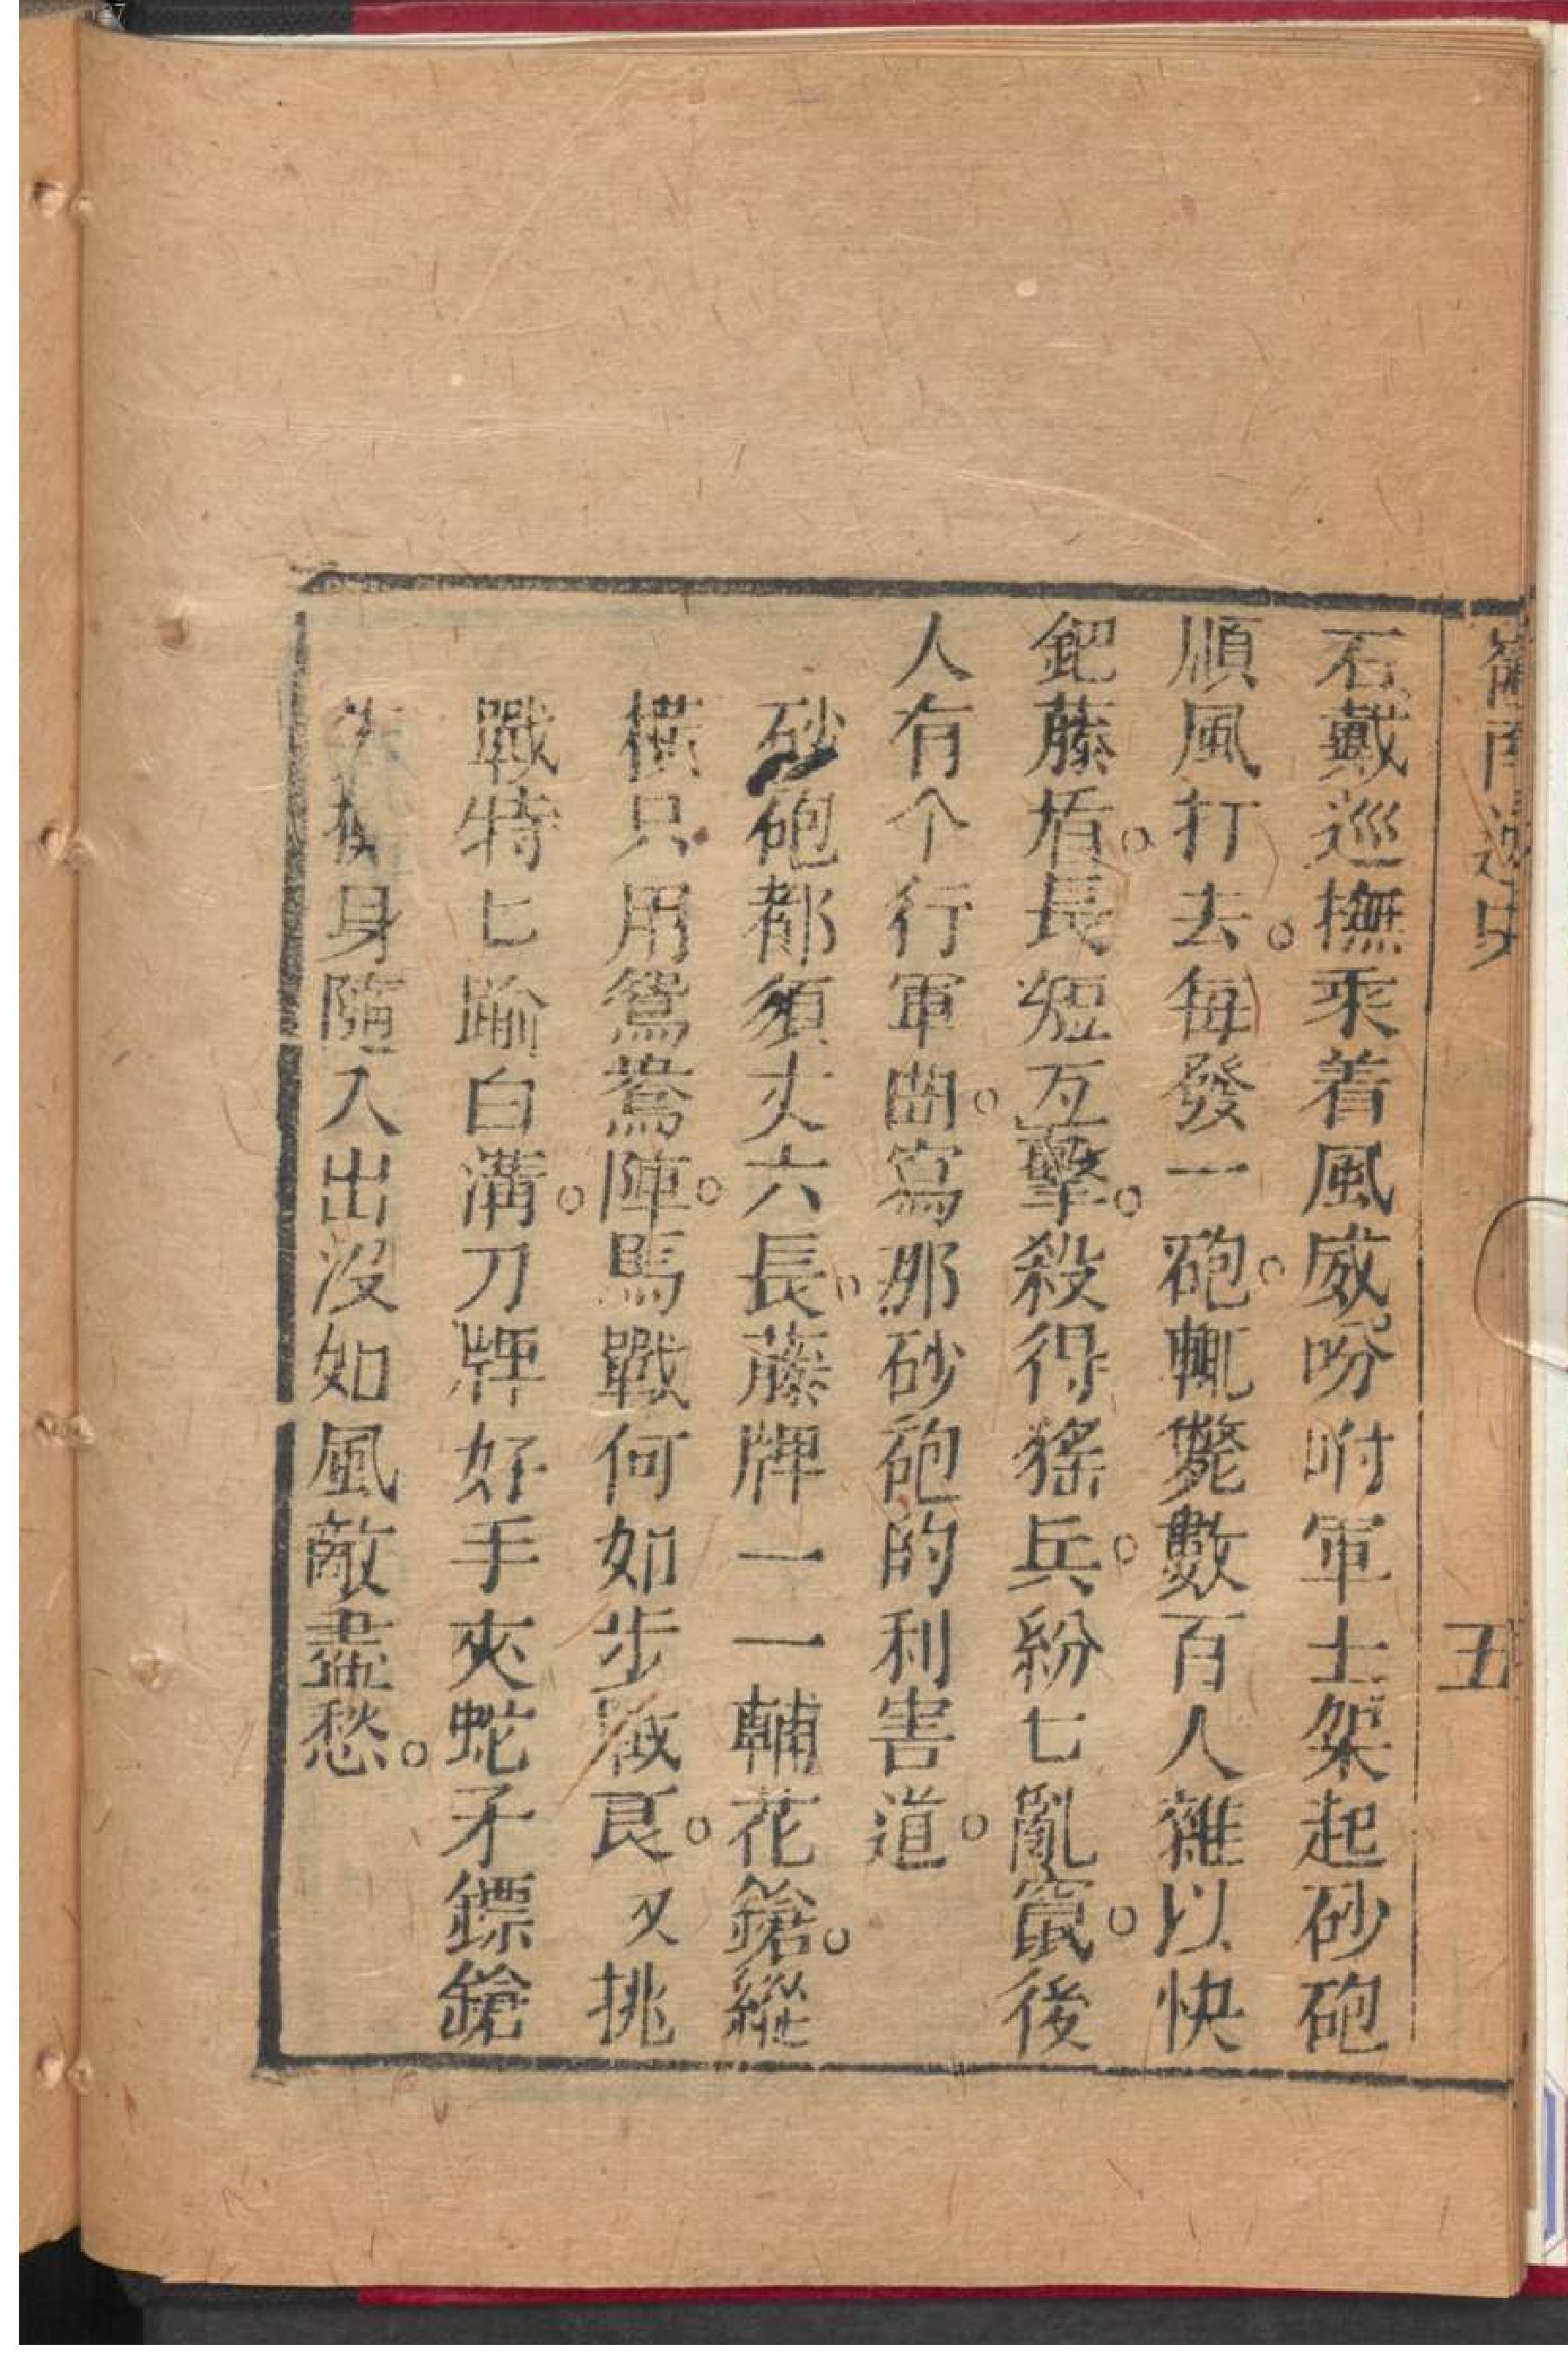 嶺南逸史
五
石戴巡撫乘着風威吩咐軍士架起砂砲
順風打去。每發一砲。輒斃數百人雜以快
鈀藤盾。長短互擊。殺得猺兵。紛七亂竄。後
人有个行軍曲。寫那砂砲的利害道。
砂砲都須丈六長。藤牌一一輔花鎗。縱
橫只用鴛鴦陣。馬戰何如步戰良。又挑
戰特七踰白溝。刀牌好手夾蛇矛鏢鎗
身隨入出沒如風敵盡愁。